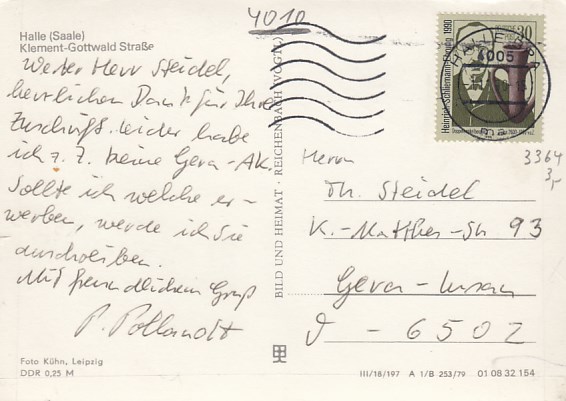 Halle (Saale)
Klement-Gottwald Straße
Werter Herr Steidel,
herzlichen Dank für Ihre
Zuschrift. Leider habe
ich z. Z. keine Gera-AK.
Sollte ich welche er-
werben, werde ich Sie
anschreiben.
Mit freundlichem Gruß
P. Pollandt
Foto Kühn, Leipzig
DDR 0,25 M
BILD UND HEIMAT · REICHENBACH (VOGTL)
4010
Heinrich-Schliemann-Ehrung 1990
30
HALLE
4005
Herrn
Th. Steidel
K.-Matthes-Str 93
Gera-Lusan
D - 6502
3364
3,-
III/18/197 A 1/B 253/79 01 08 32 154